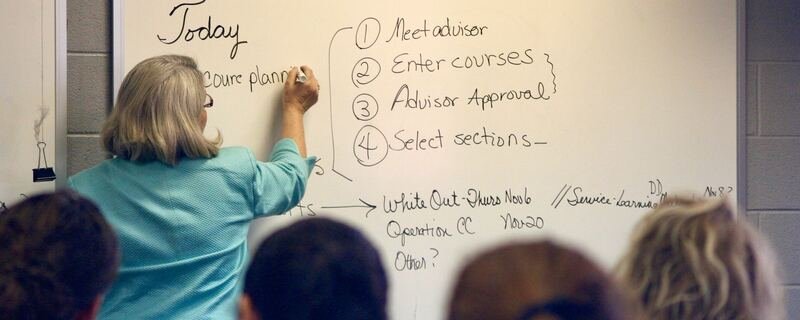 Today
coure plann
① Meet advisor
② Enter courses
③ Advisor Approval
④ Select sections
ts → White Out - Thurs Nov 6 // Service-Learning DD Nov 8?
Operation CC Nov 20
Other?